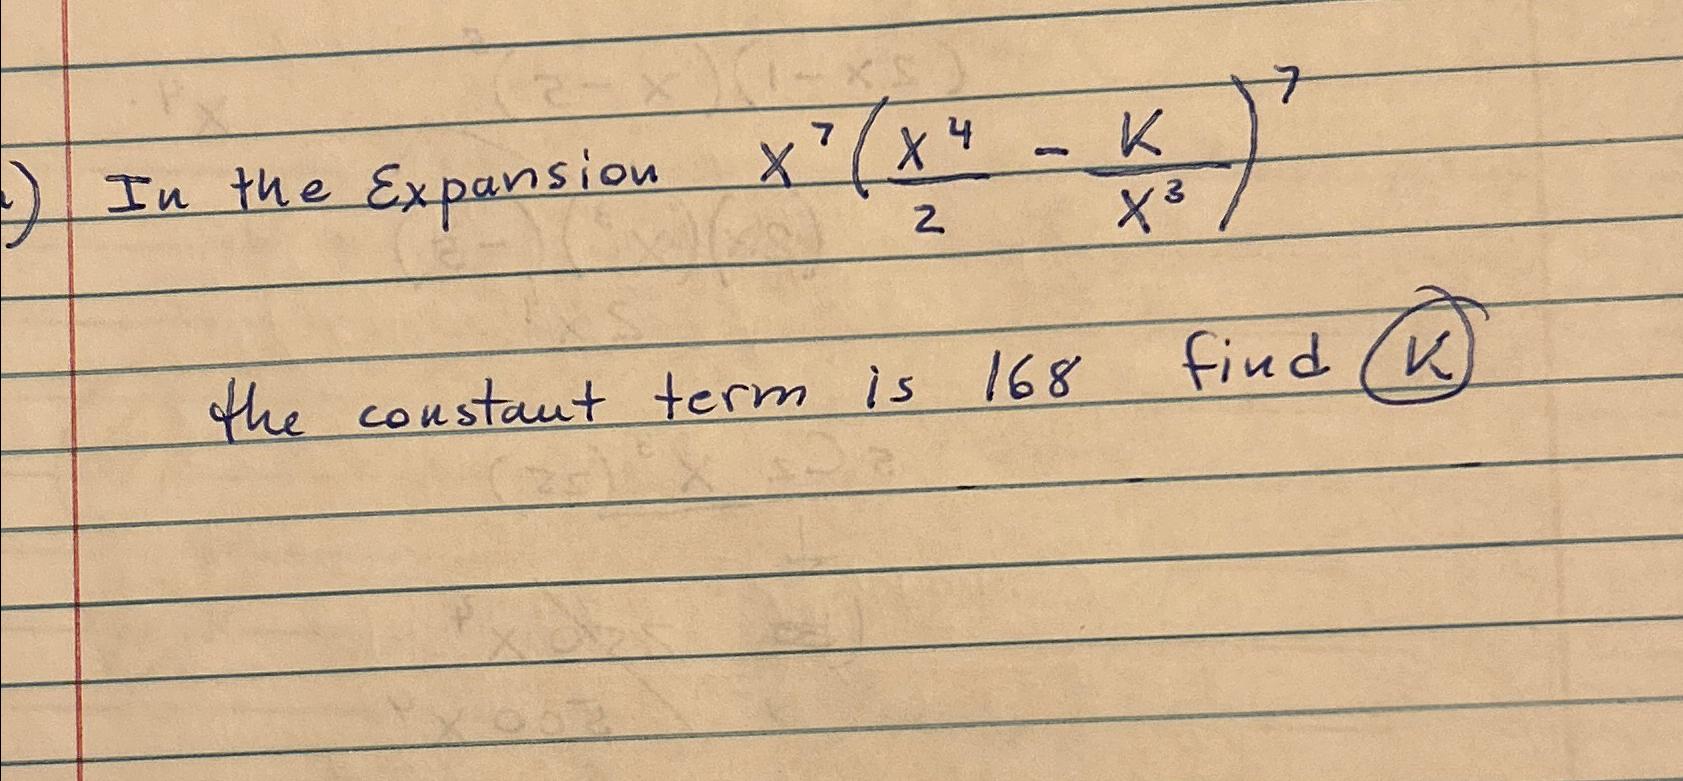 ) In the Expansion x⁷(x⁴/2 - K/x³)⁷
the constant term is 168 find K